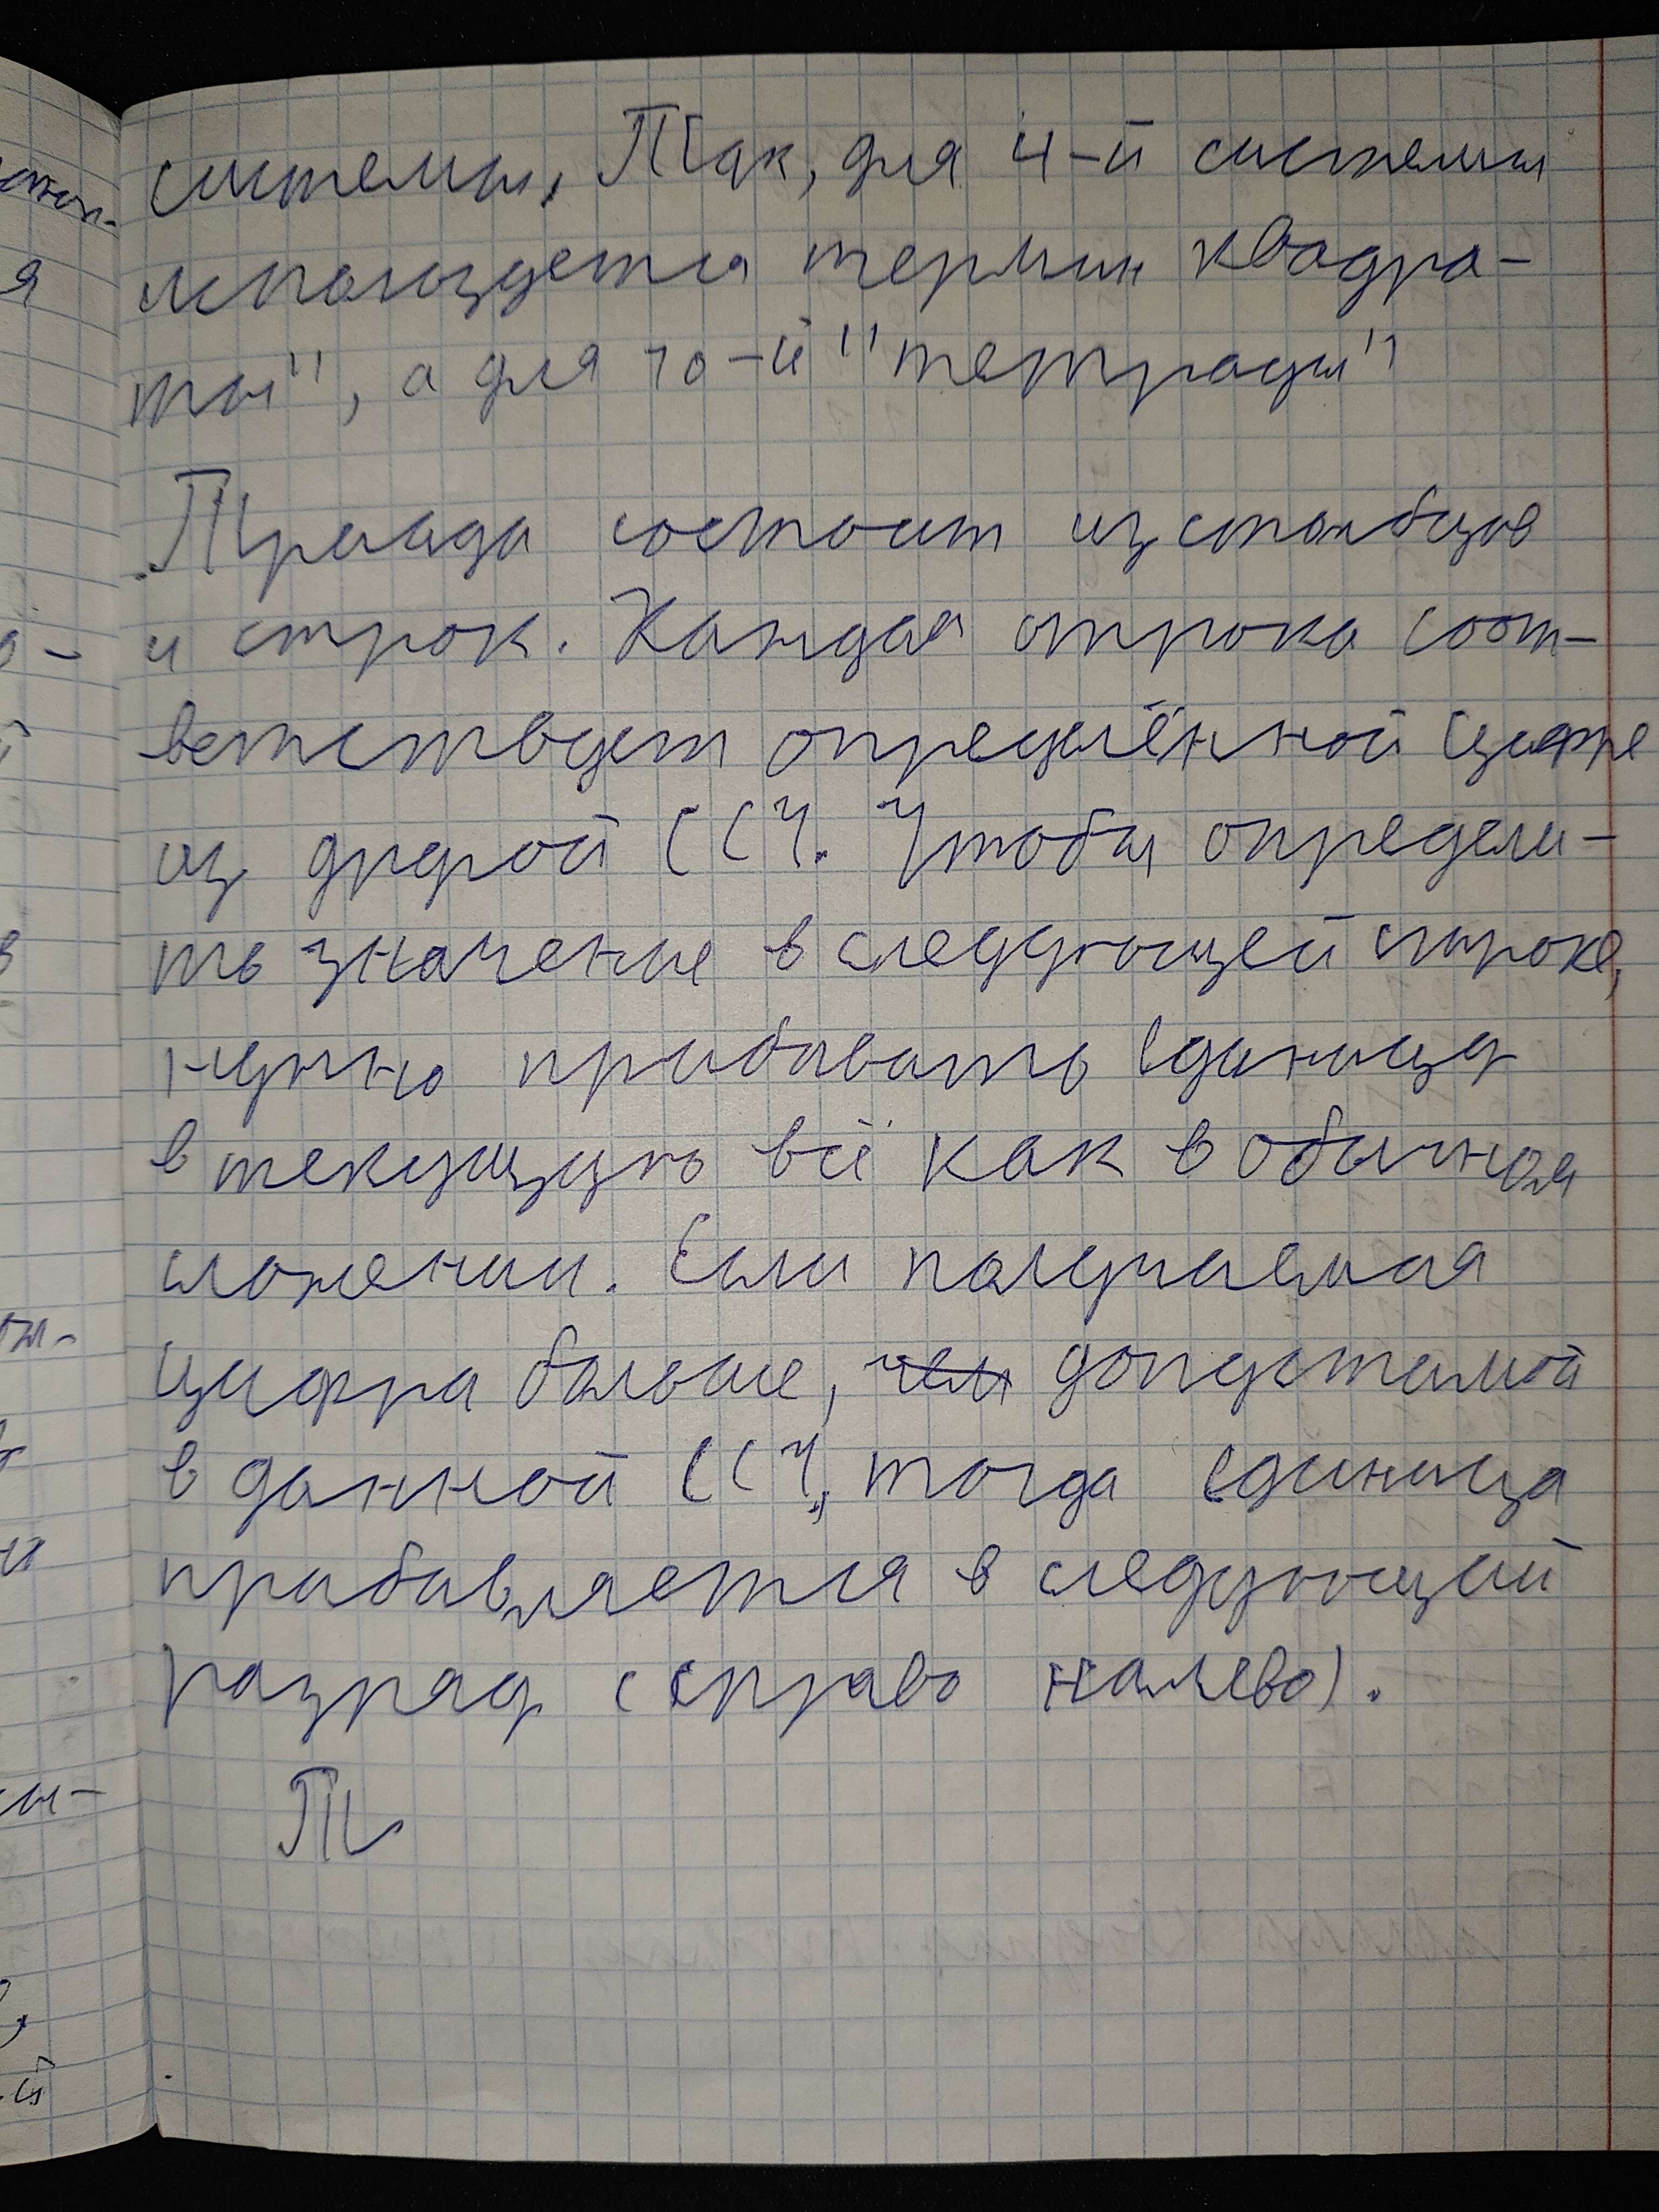 системы. Так, для 4-й системы
используется термин квадра-
ты", а для 10-й "тетрады"
Триада состоит из столбцов
и строк. Каждая строка соот-
ветствует определённой цифре
из другой ССЧ. Чтобы определи-
ть значение в следующей строке,
нужно прибавать единицу
в текущую всё как в обычном
сложении. Если получаемая
цифра больше, чем допустимой
в данной ССЧ, тогда единица
прибавляется в следующий
разряд (справо налево).